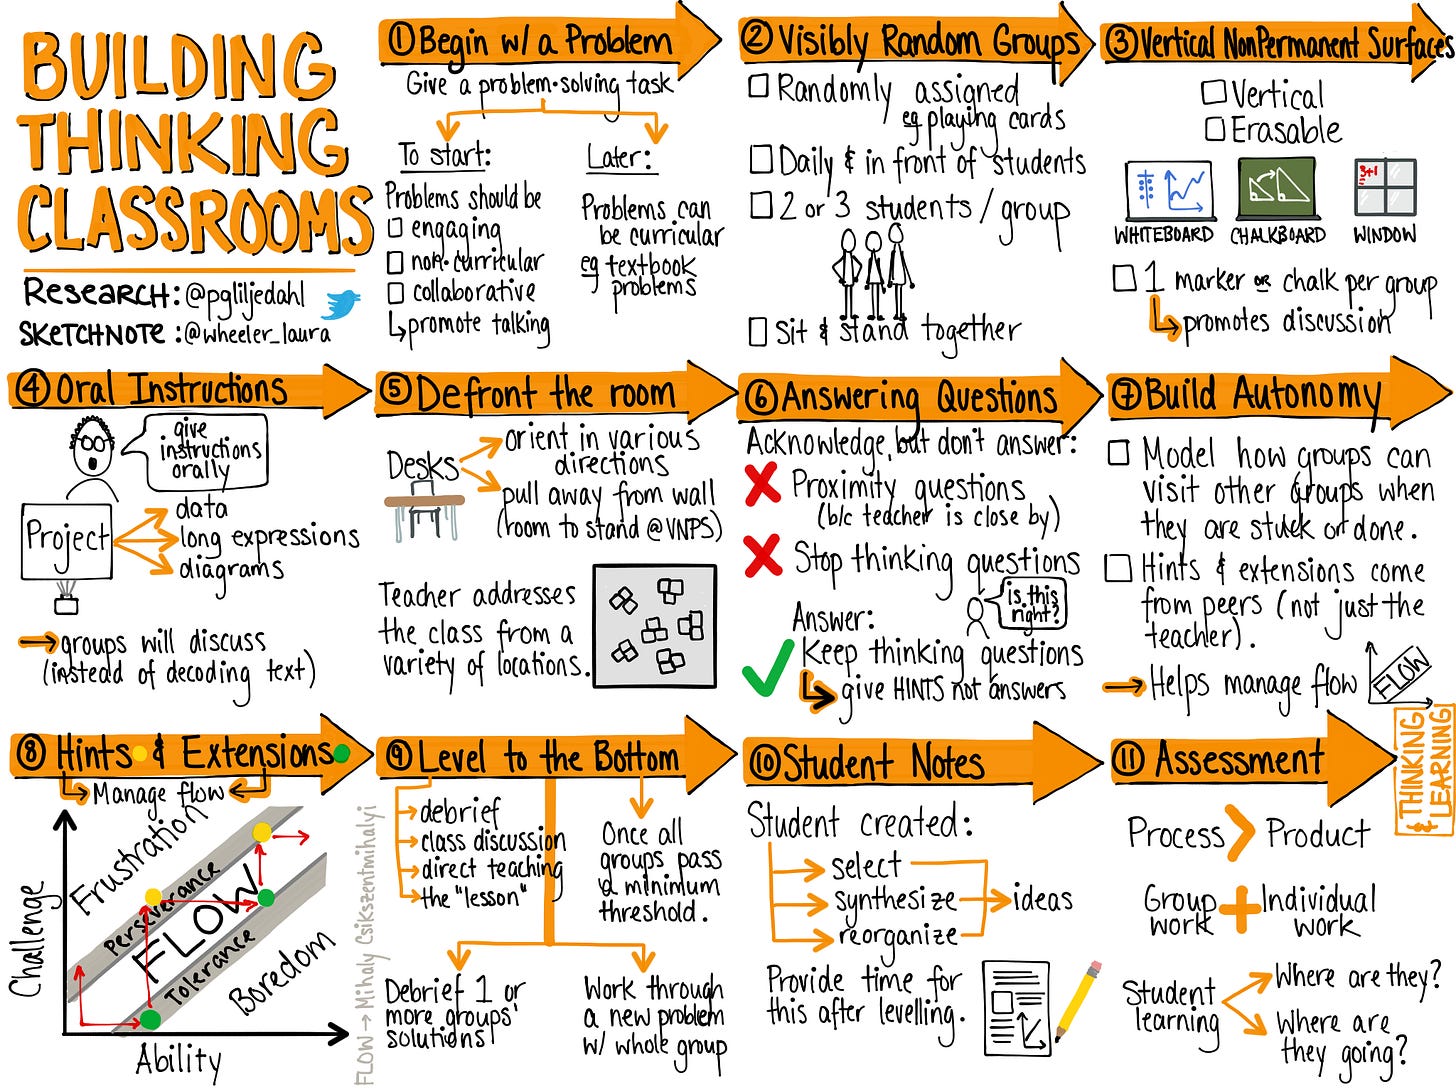 BUILDING
THINKING
CLASSROOMS
RESEARCH: @pgliljedahl
SKETCHNOTE: @wheeler_laura
① Begin w/ a Problem
Give a problem-solving task
To start:
Problems should be
engaging
non-curricular
collaborative
↳ promote talking
Later:
Problems can
be curricular
eg textbook
problems
② Visibly Random Groups
Randomly assigned
eg playing cards
Daily & in front of students
2 or 3 students / group
Sit & stand together
③ Vertical NonPermanent Surfaces
Vertical
Erasable
3+1
WHITEBOARD CHALKBOARD WINDOW
1 marker or chalk per group
promotes discussion
④ Oral Instructions
give
instructions
orally
Project
data
long expressions
diagrams
groups will discuss
(instead of decoding text)
⑤ Defront the room
Desks
orient in various
directions
pull away from wall
(room to stand @ VNPS)
Teacher addresses
the class from a
variety of locations.
⑥ Answering Questions
Acknowledge, but don't answer:
Proximity questions
(b/c teacher is close by)
Stop thinking questions
is this
right?
Answer:
Keep thinking questions
give HINTS not answers
⑦ Build Autonomy
Model how groups can
visit other groups when
they are stuck or done.
Hints & extensions come
from peers (not just the
teacher).
Helps manage flow
FLOW
⑧ Hints & Extensions
Manage flow
Challenge
Frustration
Perseverance
FLOW
Tolerance
Boredom
Ability
FLOW → Mihaly Csikszentmihalyi
⑨ Level to the Bottom
debrief
class discussion
direct teaching
the "lesson"
Once all
groups pass
a minimum
threshold.
Debrief 1 or
more groups'
solutions
Work through
a new problem
w/ whole group
⑩ Student Notes
Student created:
select
synthesize
reorganize
ideas
Provide time for
this after levelling.
⑪ Assessment
THINKING
& LEARNING
Process > Product
Group
work
+
Individual
work
Student
learning
Where are they?
Where are
they going?